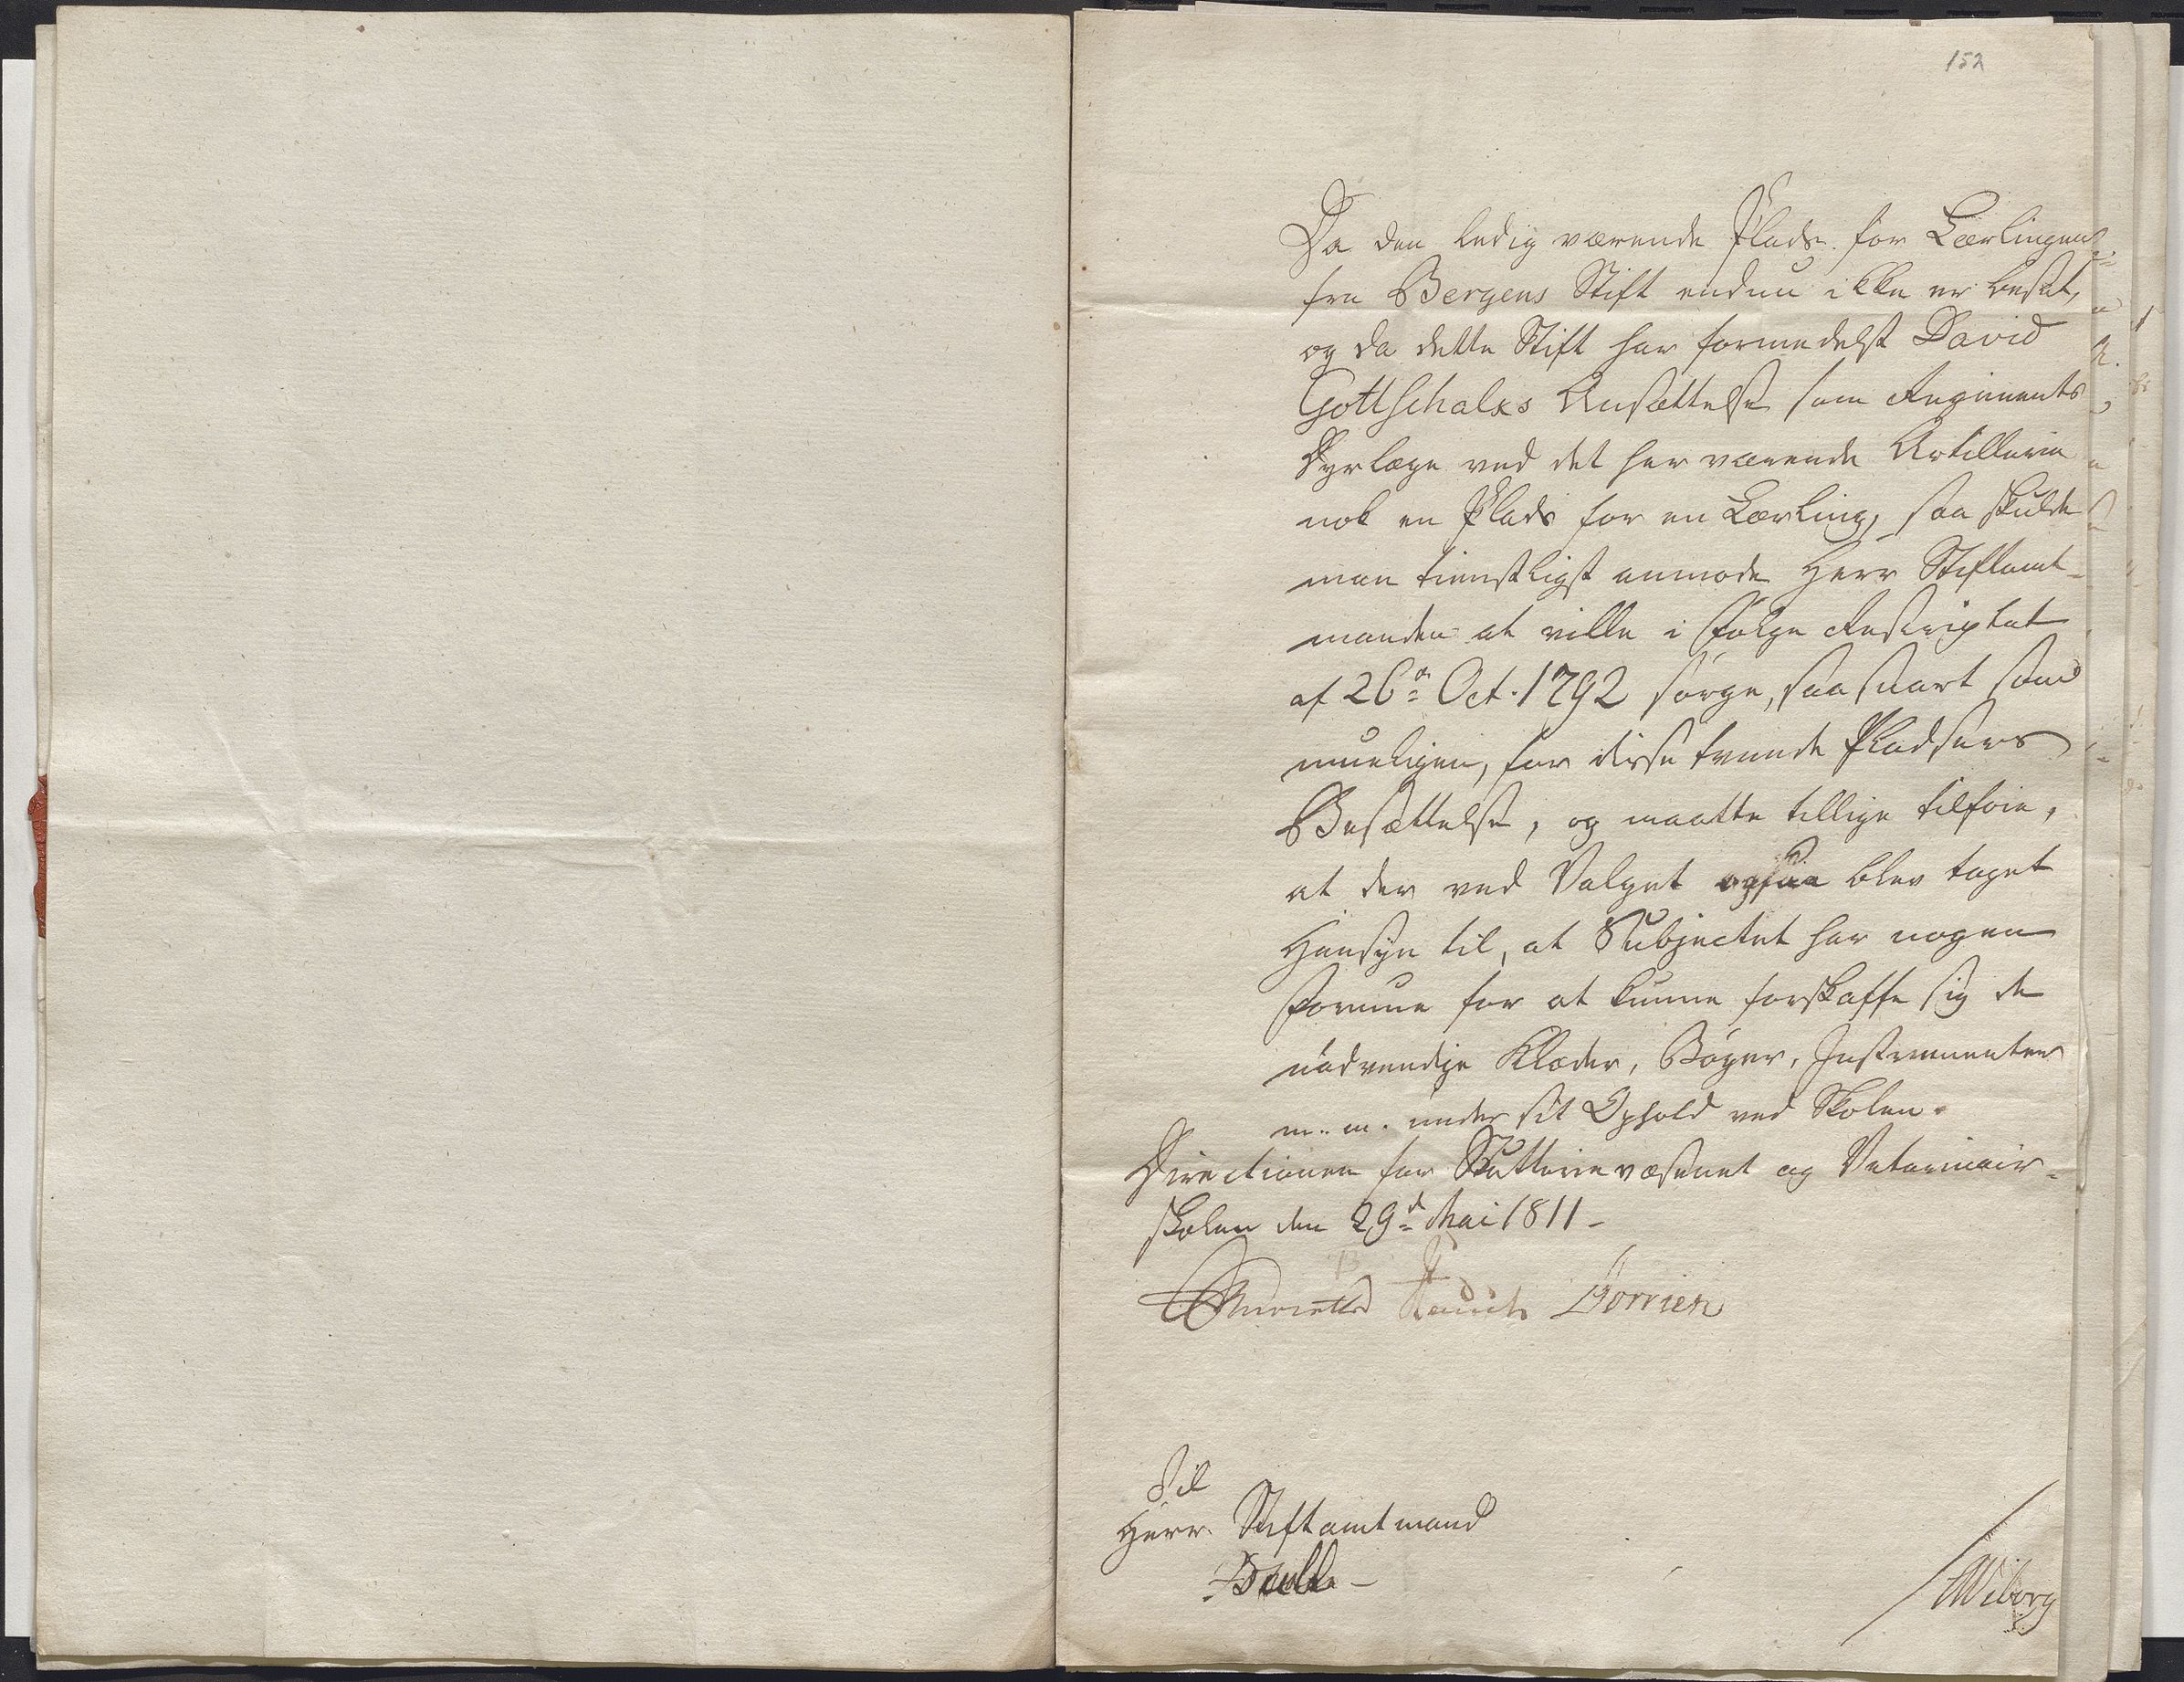 152
Da den ledig værende Plads for Lærlingen
fra Bergens Stift endnu ikke er besat,
og da dette Stift har formedelst David
Gottschalks Ansættelse som Regiments
Dyrlæge ved det her værende Artillerie
nok en Plads for en Lærling, saa skulde
man tienstligst anmode Herr Stiftamt-
manden at ville i Følge Rescriptet
af 26de Oct. 1792 sørge, saa snart som
mueligen, for disse tvende Pladsers
Besættelse, og maatte tillige tilføie,
at der ved Valget ogsaa blev taget
Hensyn til, at Subjectet har nogen
Formue for at kunne forskaffe sig de
nødvendige Klæder, Bøger, Instrumenter
m. m. under sit Ophold ved Skolen.
Directionen for Stutterievæsenet og Veterinair-
skolen den 29d Mai 1811 -
Hauch Dorrien
Til
Herr Stiftamtmand
Bull -
/Wiborg